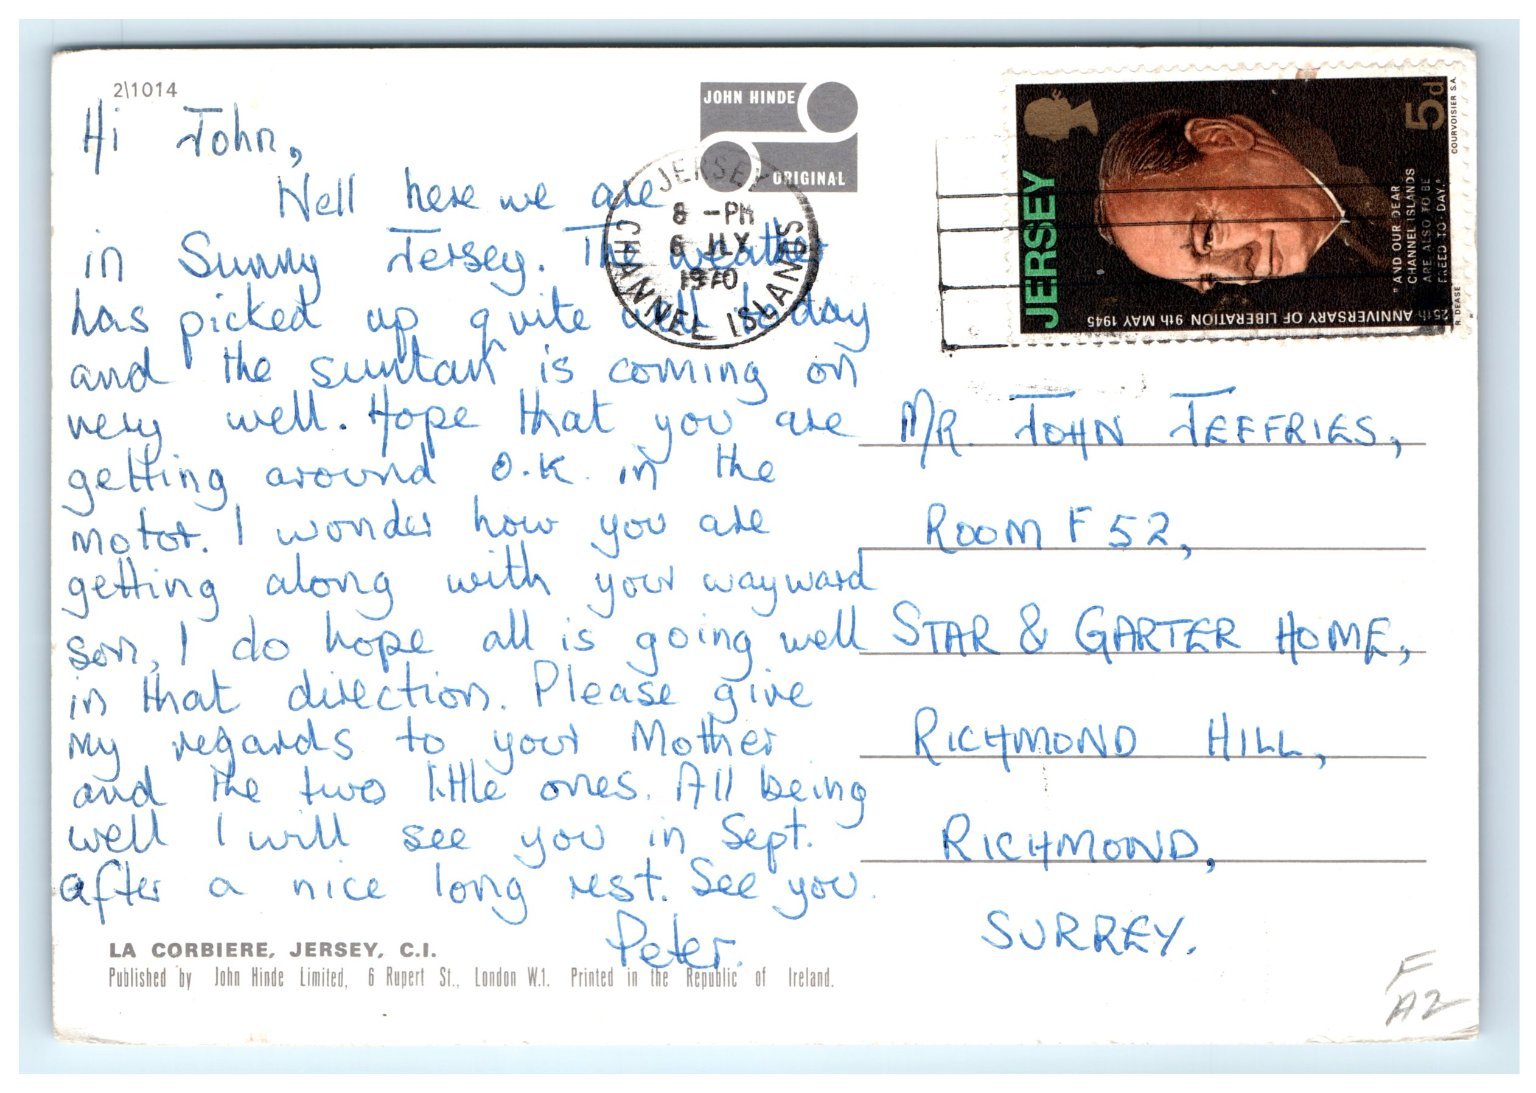 2\1014
Hi John,
Well here we are
in Sunny Jersey. The weather
has picked up quite well to day
and the suntan is coming on
very well. Hope that you are
getting around O.K. in the
motor. I wonder how you are
getting along with your wayward
son, I do hope all is going well
in that direction. Please give
my regards to your Mother
and the two little ones. All being
well I will see you in Sept.
after a nice long rest. See you.
Peter.
LA CORBIERE, JERSEY, C.I.
Published by John Hinde Limited, 6 Rupert St., London W.1. Printed in the Republic of Ireland.
JOHN HINDE
ORIGINAL
JERSEY
8 -PM
6 JLY
1970
CHANNEL ISLANDS
JERSEY
5d
"AND OUR DEAR
CHANNEL ISLANDS
ARE ALSO TO BE
FREED TO DAY."
25th ANNIVERSARY OF LIBERATION 9th MAY 1945
R. DEASE
COURVOISIER S.A.
MR. JOHN JEFFRIES,
ROOM F 52,
STAR & GARTER HOME,
RICHMOND HILL,
RICHMOND,
SURREY.
F
A2